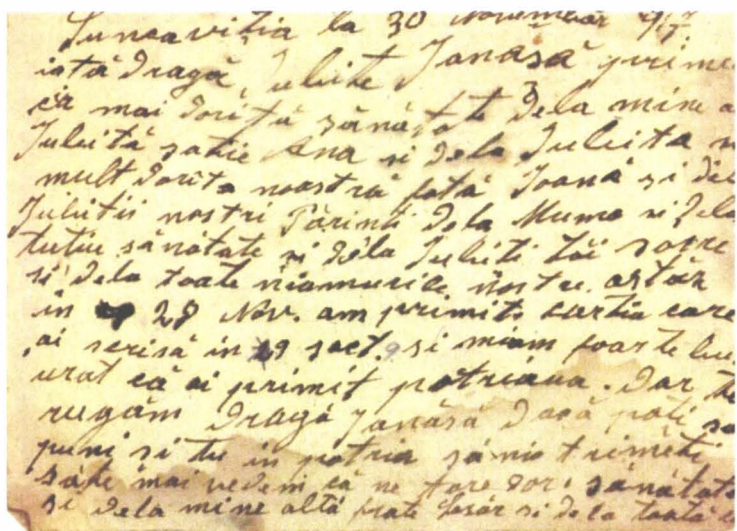 Suncavitia la 30 Novembăr 917
iată Dragă Iubite Ianasă prime
că mai Dorită sănătate Dela mine a
Iubită soție Ana si Dela Iubita n
mult Dorita noastră fată Ioană si del
Iubitii nostri Părinti Dela Muma si Dela
tutiu sănătate si Dela Iubiti tăi socre
si Dela toate niamurile nostre. astăz
in 28 Nov. am primit cartia care
ai scrisă in 29 soct. si miam foarte bu
urat că ai primit potriaua. Dar te
rugăm Dragă Ianăsă Dacă poti să
puni si tu in potria să nio trimeti
săte mai vedem că ne tare dor. sănătate
si Dela mine altă frate Cesăr si Dela toată